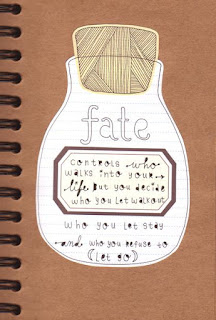 fate
controls who
walks into your
life but you decide
who you let walk out
who you let stay
and who you refuse to
(let go)